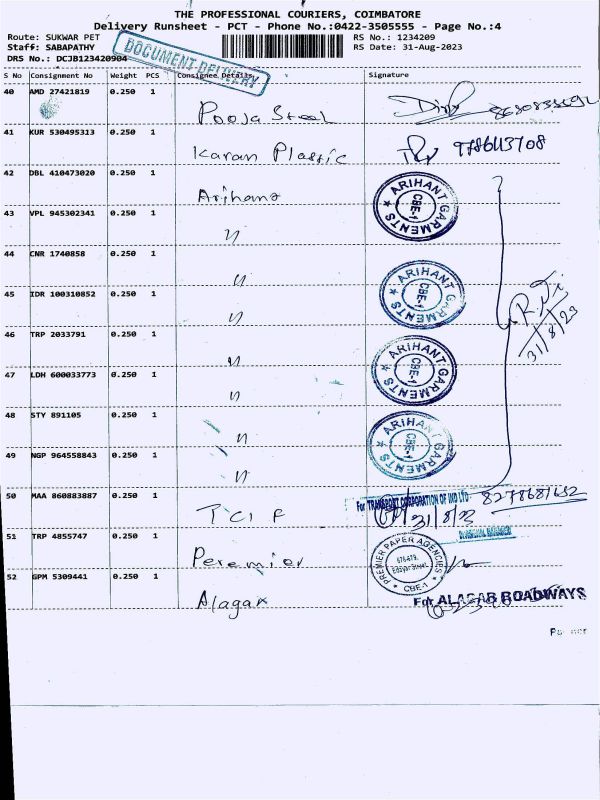 THE PROFESSIONAL COURIERS, COIMBATORE
Delivery Runsheet - PCT - Phone No.:0422-3505555 - Page No.:4
Route: SUKWAR PET RS No.: 1234209
Staff: SABAPATHY RS Date: 31-Aug-2023
DRS No.: DCJB123420904
DOCUMENT DELIVERY
S No Consignment No Weight PCS Consignee Details Signature
40 AMD 27421819 0.250 1
Pooja Steel
41 KUR 530495313 0.250 1
Karan Plastic
42 DBL 410473020 0.250 1
Arihant ARIHANT GARMENTS CBE-1
43 VPL 945302341 0.250 1
"
44 CNR 1740858 0.250 1
" ARIHANT GARMENTS CBE-1
45 IDR 100310852 0.250 1
"
31/8/23
46 TRP 2033791 0.250 1
" ARIHANT GARMENTS CBE-1
47 LDH 600033773 0.250 1
"
48 STY 891105 0.250 1
" ARIHANT GARMENTS CBE-1
49 NGP 964558843 0.250 1
"
50 MAA 860883887 0.250 1
For TRANSPORT CORPORATION OF IND LTD
TCI F 31/8/23
51 TRP 4855747 0.250 1
Peremier PREMIER PAPER AGENCIES CBE-1
52 GPM 5309441 0.250 1
Alagar For ALAGAR ROADWAYS